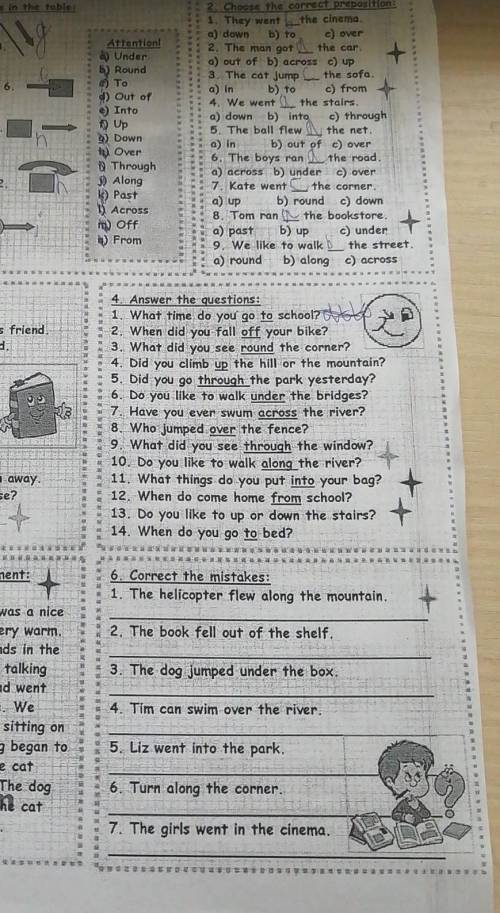 s in the table:
6.
Attention!
a) Under
b) Round
c) To
d) Out of
e) Into
f) Up
g) Down
h) Over
i) Through
j) Along
k) Past
l) Across
m) Off
n) From
2. Choose the correct preposition:
1. They went __ the cinema.
a) down b) to c) over
2. The man got __ the car.
a) out of b) across c) up
3. The cat jump __ the sofa.
a) in b) to c) from
4. We went __ the stairs.
a) down b) into c) through
5. The ball flew __ the net.
a) in b) out of c) over
6. The boys ran __ the road.
a) across b) under c) over
7. Kate went __ the corner.
a) up b) round c) down
8. Tom ran __ the bookstore.
a) past b) up c) under
9. We like to walk __ the street.
a) round b) along c) across
s friend.
d.
away.
se?
4. Answer the questions:
1. What time do you go to school?
2. When did you fall off your bike?
3. What did you see round the corner?
4. Did you climb up the hill or the mountain?
5. Did you go through the park yesterday?
6. Do you like to walk under the bridges?
7. Have you ever swum across the river?
8. Who jumped over the fence?
9. What did you see through the window?
10. Do you like to walk along the river?
11. What things do you put into your bag?
12. When do come home from school?
13. Do you like to up or down the stairs?
14. When do you go to bed?
ment:
was a nice
ery warm.
nds in the
talking
nd went
. We
sitting on
g began to
e cat
The dog
he cat
6. Correct the mistakes:
1. The helicopter flew along the mountain.
2. The book fell out of the shelf.
3. The dog jumped under the box.
4. Tim can swim over the river.
5. Liz went into the park.
6. Turn along the corner.
7. The girls went in the cinema.